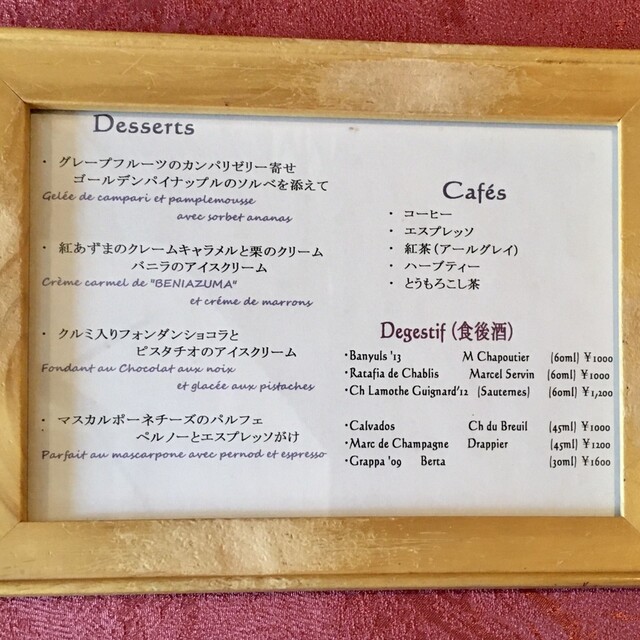 Desserts
・ グレープフルーツのカンパリゼリー寄せ
ゴールデンパイナップルのソルベを添えて
Gelée de campari et pamplemousse
avec sorbet ananas
・ 紅あずまのクレームキャラメルと栗のクリーム
バニラのアイスクリーム
Crème carmel de "BENIAZUMA"
et créme de marrons
・ クルミ入りフォンダンショコラと
ピスタチオのアイスクリーム
Fondant au Chocolat aux noix
et glacée aux pistaches
・ マスカルポーネチーズのパルフェ
ペルノーとエスプレッソがけ
Parfait au mascarpone avec pernod et espresso
Cafés
・ コーヒー
・ エスプレッソ
・ 紅茶(アールグレイ)
・ ハーブティー
・ とうもろこし茶
Degestif (食後酒)
・Banyuls '13 M Chapoutier (60ml) ¥1000
・Ratafia de Chablis Marcel Servin (60ml) ¥1000
・Ch Lamothe Guignard'12 (Sauternes) (60ml) ¥1,200
・Calvados Ch du Breuil (45ml) ¥1000
・Marc de Champagne Drappier (45ml) ¥1200
・Grappa '09 Berta (30ml) ¥1600